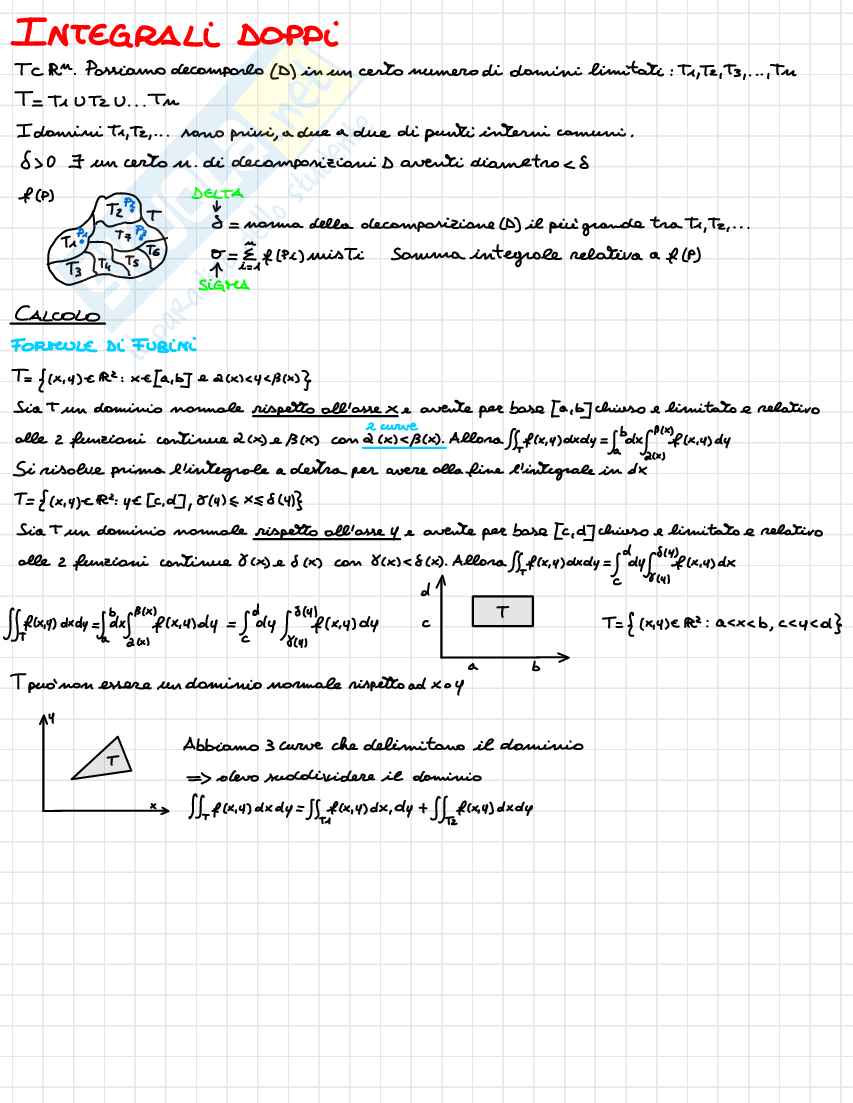 INTEGRALI DOPPI
T⊂ℝⁿ. Possiamo decomporlo (D) in un certo numero di domini limitati: T1,T2,T3,...,Tn
T= T1 ∪ T2 ∪ ... Tn
I domini T1,T2,... sono privi, a due a due di punti interni comuni.
δ>0 ∃ un certo n. di decomposizioni D aventi diametro < δ
f(P)
T1 P1 T2 P2 T T7 P3 T6 T3 T4 T5
DELTA
↓
δ = norma della decomposizione (D) il più grande tra T1,T2,...
σ = Σⁿᵢ₌₁ f(Pi) mis Ti Somma integrale relativa a f(P)
↑
SIGMA
CALCOLO
FORMULE DI FUBINI
T= {(x,y)∈ℝ²: x∈[a,b] e α(x)<y<β(x)}
Sia T un dominio normale rispetto all'asse x e avente per base [a,b] chiuso e limitato e relativo
2 curve
alle 2 funzioni continue α(x) e β(x) con α(x)<β(x). Allora ∬_T f(x,y)dxdy = ∫_a^b dx ∫_α(x)^β(x) f(x,y) dy
Si risolve prima l'integrale a destra per avere alla fine l'integrale in dx
T= {(x,y)∈ℝ²: y∈[c,d], γ(y)⩽ x⩽ δ(y)}
Sia T un dominio normale rispetto all'asse y e avente per base [c,d] chiuso e limitato e relativo
alle 2 funzioni continue γ(x) e δ(x) con γ(x)<δ(x). Allora ∬_T f(x,y)dxdy = ∫_c^d dy ∫_γ(y)^δ(y) f(x,y) dx
∬_T f(x,y) dxdy = ∫_a^b dx ∫_α(x)^β(x) f(x,y) dy = ∫_c^d dy ∫_γ(y)^δ(y) f(x,y) dy
d c T a b
T= { (x,y)∈ℝ²: a<x<b, c<y<d}
T può non essere un dominio normale rispetto ad x o y
y T x
Abbiamo 3 curve che delimitano il dominio
=> devo suddividere il dominio
∬_T f(x,y) dxdy = ∬_T1 f(x,y) dx,dy + ∬_T2 f(x,y) dxdy